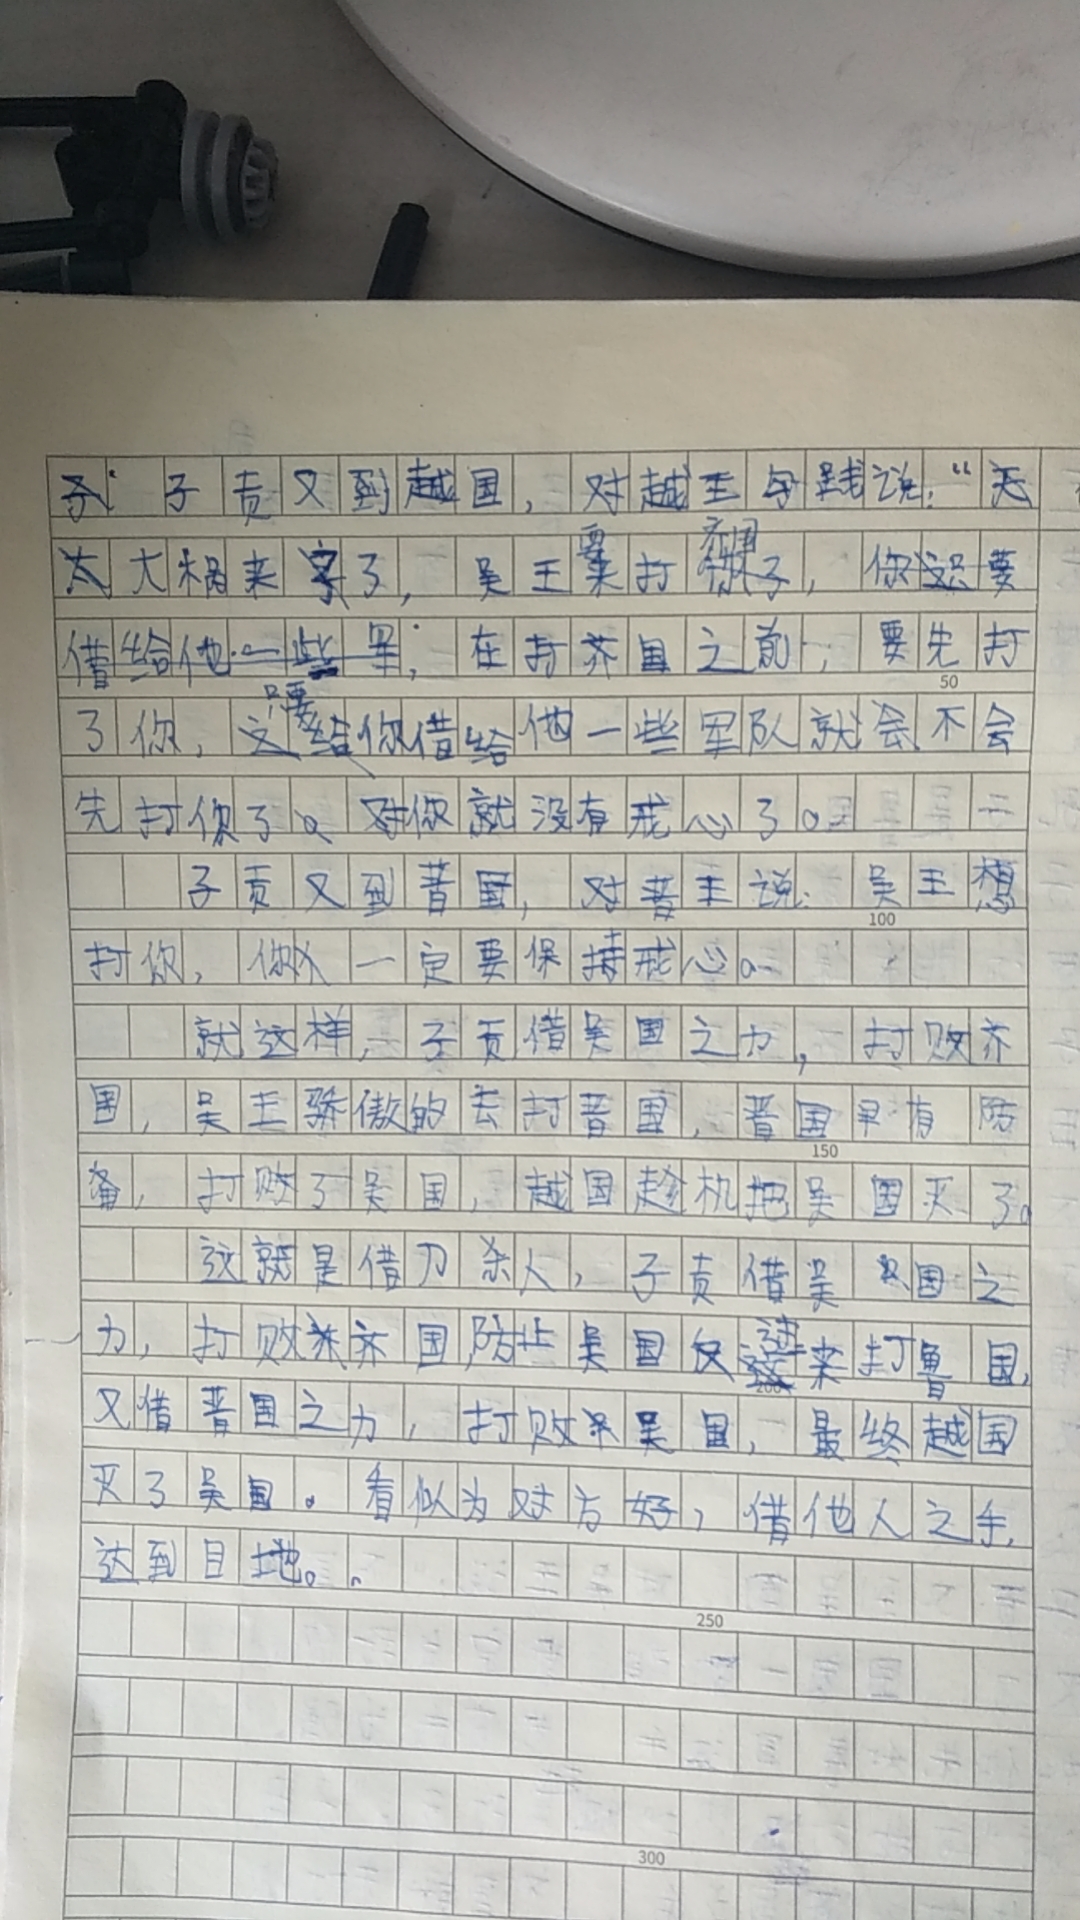 子贡又到越国，对越王勾践说：“
大祸来了，吴王要打齐国了，你
在打齐国之前，要先打
了你，只要你借给他一些军队就会不会
先打你了。对你就没有戒心了。
50
子贡又到晋国，对晋王说：吴王想
100
打你，你一定要保持戒心。
就这样，子贡借吴国之力，打败齐
国，吴王骄傲的去打晋国，晋国早有防
150
备，打败了吴国，越国趁机把吴国灭了。
这就是借刀杀人，子贡借吴国之
力，打败齐国防止吴国反过来打鲁国，
200
又借晋国之力，打败吴国，最终越国
灭了吴国。看似为对方好，借他人之手，
达到目地。
250
300